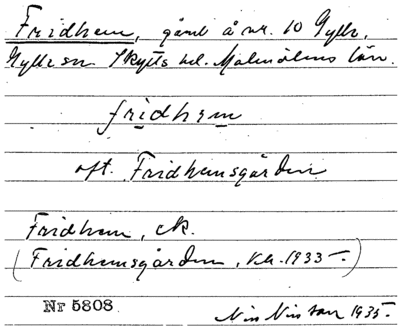 Fridhem, gård å nr. 10 Gylle,
Gylle sn. Skytts hd. Malmöhus län.
fridhem
oft. Fridhemsgården
Fridhem, ek.
(Fridhemsgården, kh. 1933 –)
Nr 5808
Nils Nilsson 1935.